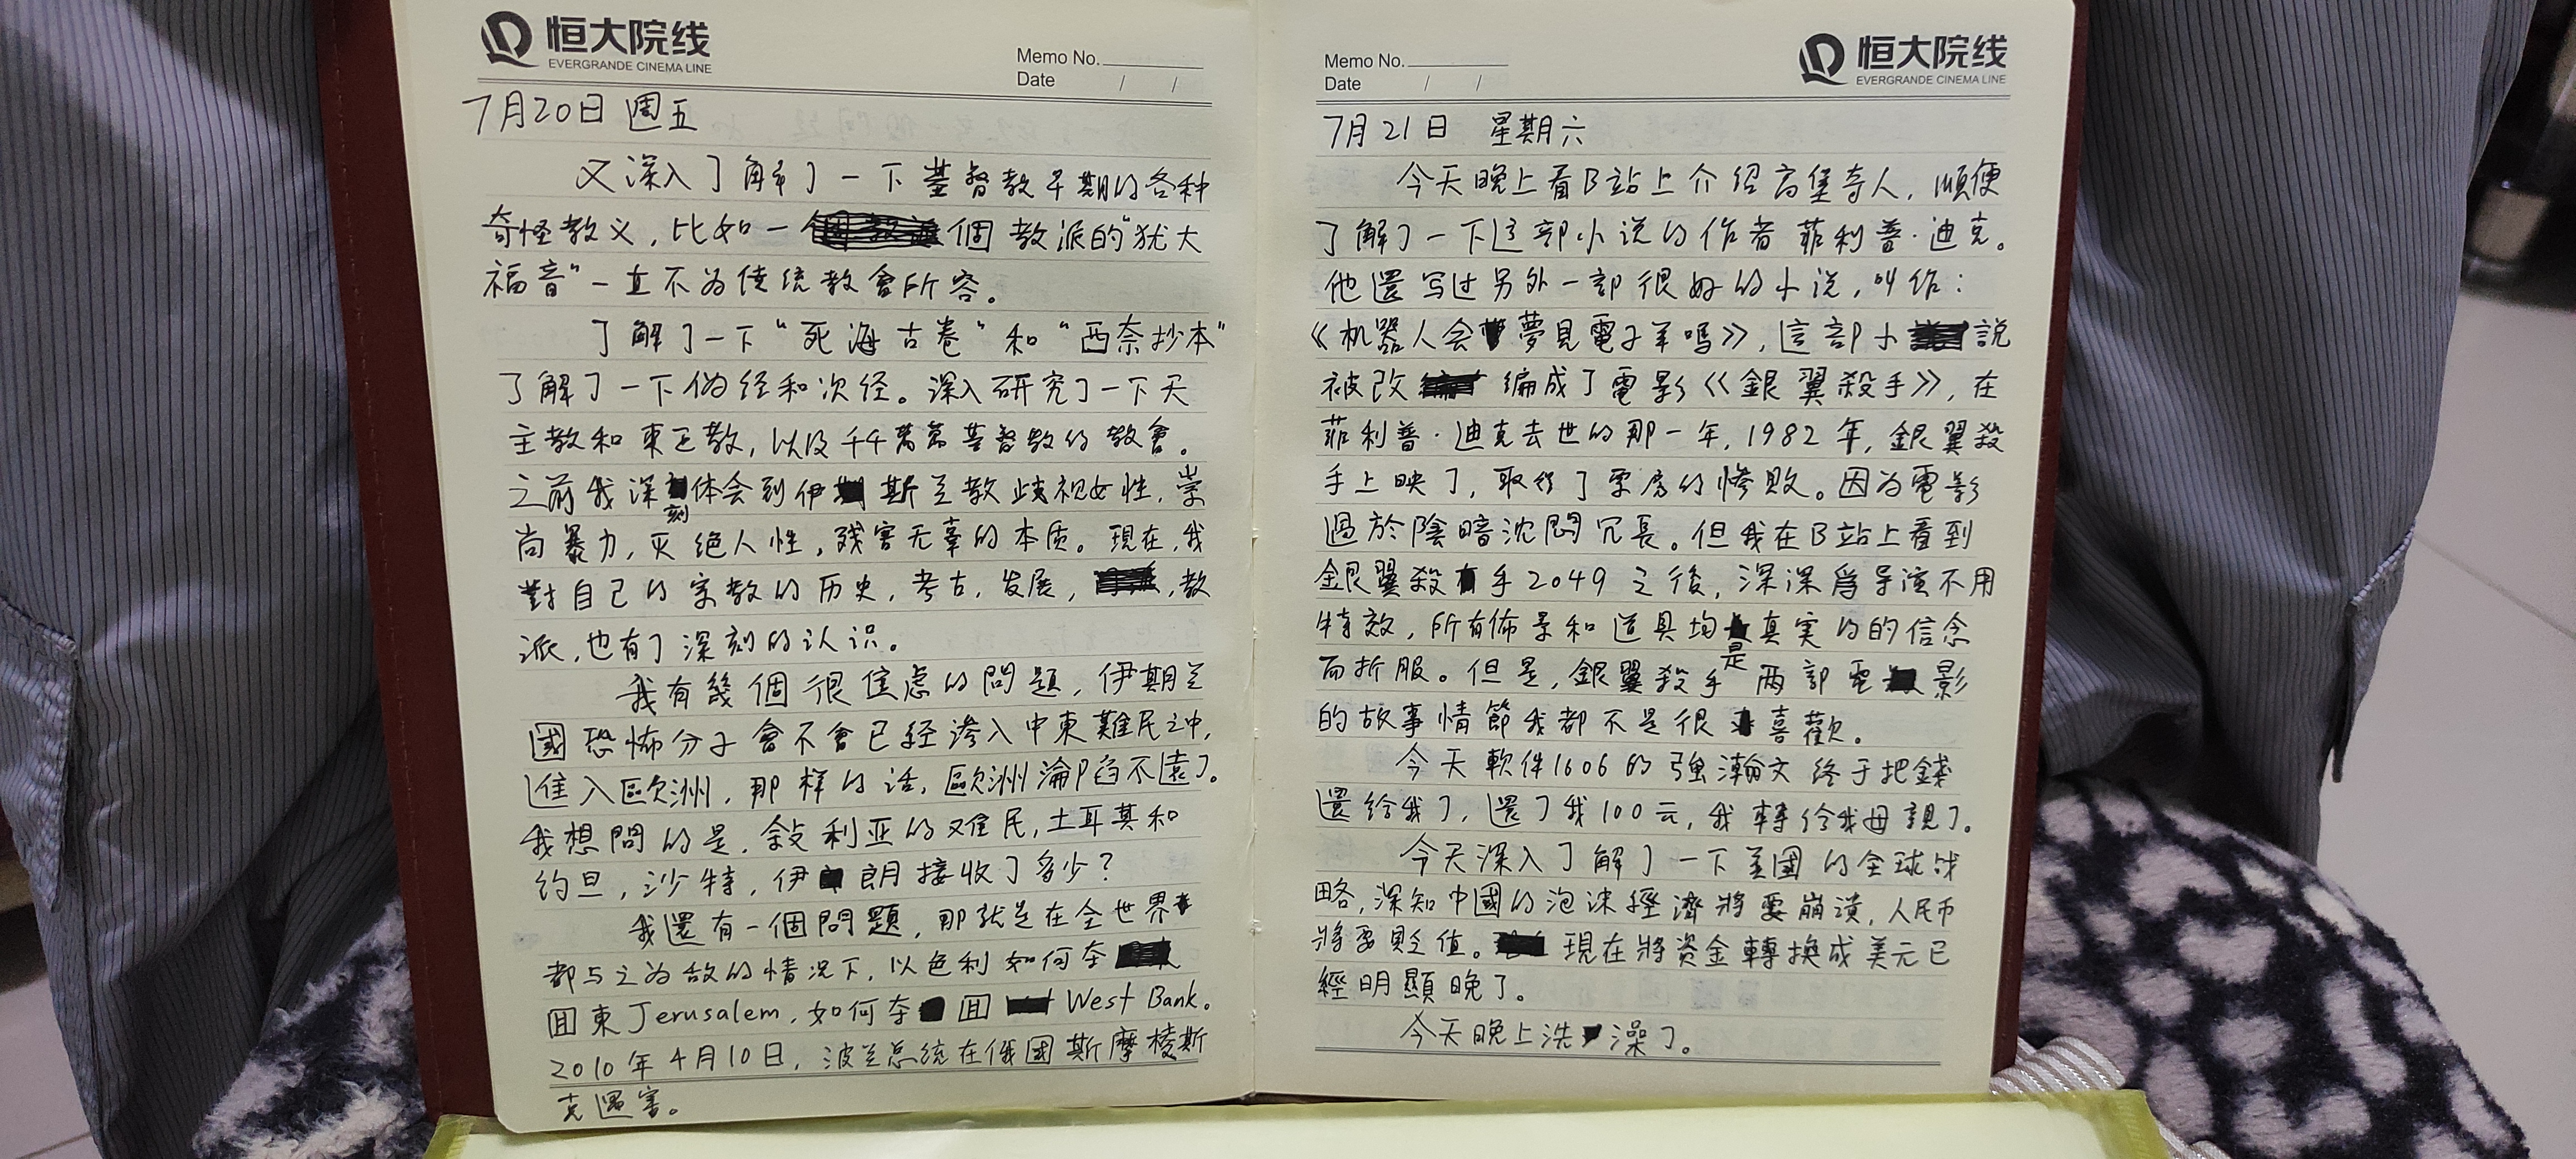 恒大院线
EVERGRANDE CINEMA LINE
Memo No.
Date / /
7月20日 週五
又深入了解了一下基督教早期的各种
奇怪教义，比如一個教派的"犹大
福音"一直不为传统教會所容。
了解了一下"死海古卷"和"西奈抄本"
了解了一下伪经和次经。深入研究了一下天
主教和東正教，以及千千萬萬基督教的教會。
之前我深刻体会到伊斯兰教歧视女性，崇
尚暴力，灭绝人性，残害无辜的本质。現在，我
對自己的宗教的历史，考古，发展，教
派，也有了深刻的认识。
我有幾個很焦虑的問題，伊斯兰
國恐怖分子會不會已经滲入中東難民之中，
進入歐洲，那样的话，歐洲淪陷不遠了。
我想問的是，敍利亚的难民，土耳其和
约旦，沙特，伊朗接收了多少？
我還有一個問題，那就是在全世界
都与之为敌的情况下，以色利如何夺
回東Jerusalem，如何夺回 West Bank。
2010年4月10日，波兰总统在俄國斯摩棱斯
克遇害。
恒大院线
EVERGRANDE CINEMA LINE
Memo No.
Date / /
7月21日 星期六
今天晚上看B站上介绍高堡奇人，順便
了解了一下这部小说的作者菲利普·迪克。
他還写过另外一部很好的小说，叫作：
《机器人会夢見電子羊嗎》，這部小說
被改編成了電影《銀翼殺手》，在
菲利普·迪克去世的那一年，1982年，銀翼殺
手上映了，取得了票房的惨败。因为電影
過於陰暗沈悶冗長。但我在B站上看到
銀翼殺手2049之後，深深爲导演不用
特效，所有佈景和道具均是真実的的信念
而折服。但是，銀翼殺手两部電影
的故事情節我都不是很喜歡。
今天軟件1606的強瀚文终于把錢
還给我了，還了我100元，我轉给我母親了。
今天深入了解了一下美國的全球战
略，深知中國的泡沫經濟將要崩溃，人民币
將要貶值。現在將資金轉換成美元已
經明顯晚了。
今天晚上洗澡了。